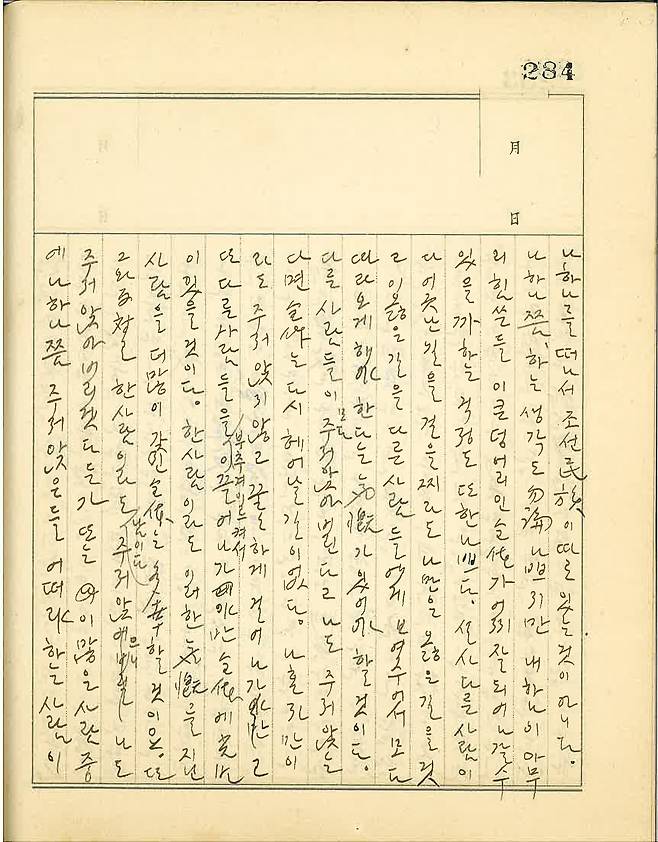 284
月
日
나 하나를 떠나서 조선民族이 따로 있는 것이 아니다.
나 하나쯤, 하는 생각도 勿論 나쁘지만 내 하나이 아무
리 힘쓴들 이 큰 덩어리인 全体가 어찌 잘 되어 나갈 수
있을까 하는 걱정도 또한 나쁘다. 설사 다른 사람이
다 어긋난 길을 걸을찌라도 나만은 옳은 길을 걷
고 이 옳은 길을 다른 사람들에게 보여주어서 모다
따라오게 해야 한다는 氣慨가 있어야 할 것이다.
다른 사람들이 모다 주저앉아 버린다고 나도 주저앉는
다면 全体는 다시 헤어날 길이 없다. 나 혼자만이
라도 주저앉지 않고 꿋꿋하게 걸어 나가야만 그
또 다른 사람들을 부추겨 이르켜서 이끌어 나가야만 全体에 光
이 있을 것이다. 한 사람이라도 이러한 氣慨를 지닌
사람을 더 많이 갖인 全体는 多幸할 것이요. 또
그와 反対로 한 사람이라도 남이 다 주저앉으니 나도
주저앉아 버리겠다든가 또는 이 많은 사람 중
에 나 하나쯤 주저앉은들 어떠랴 하는 사람이